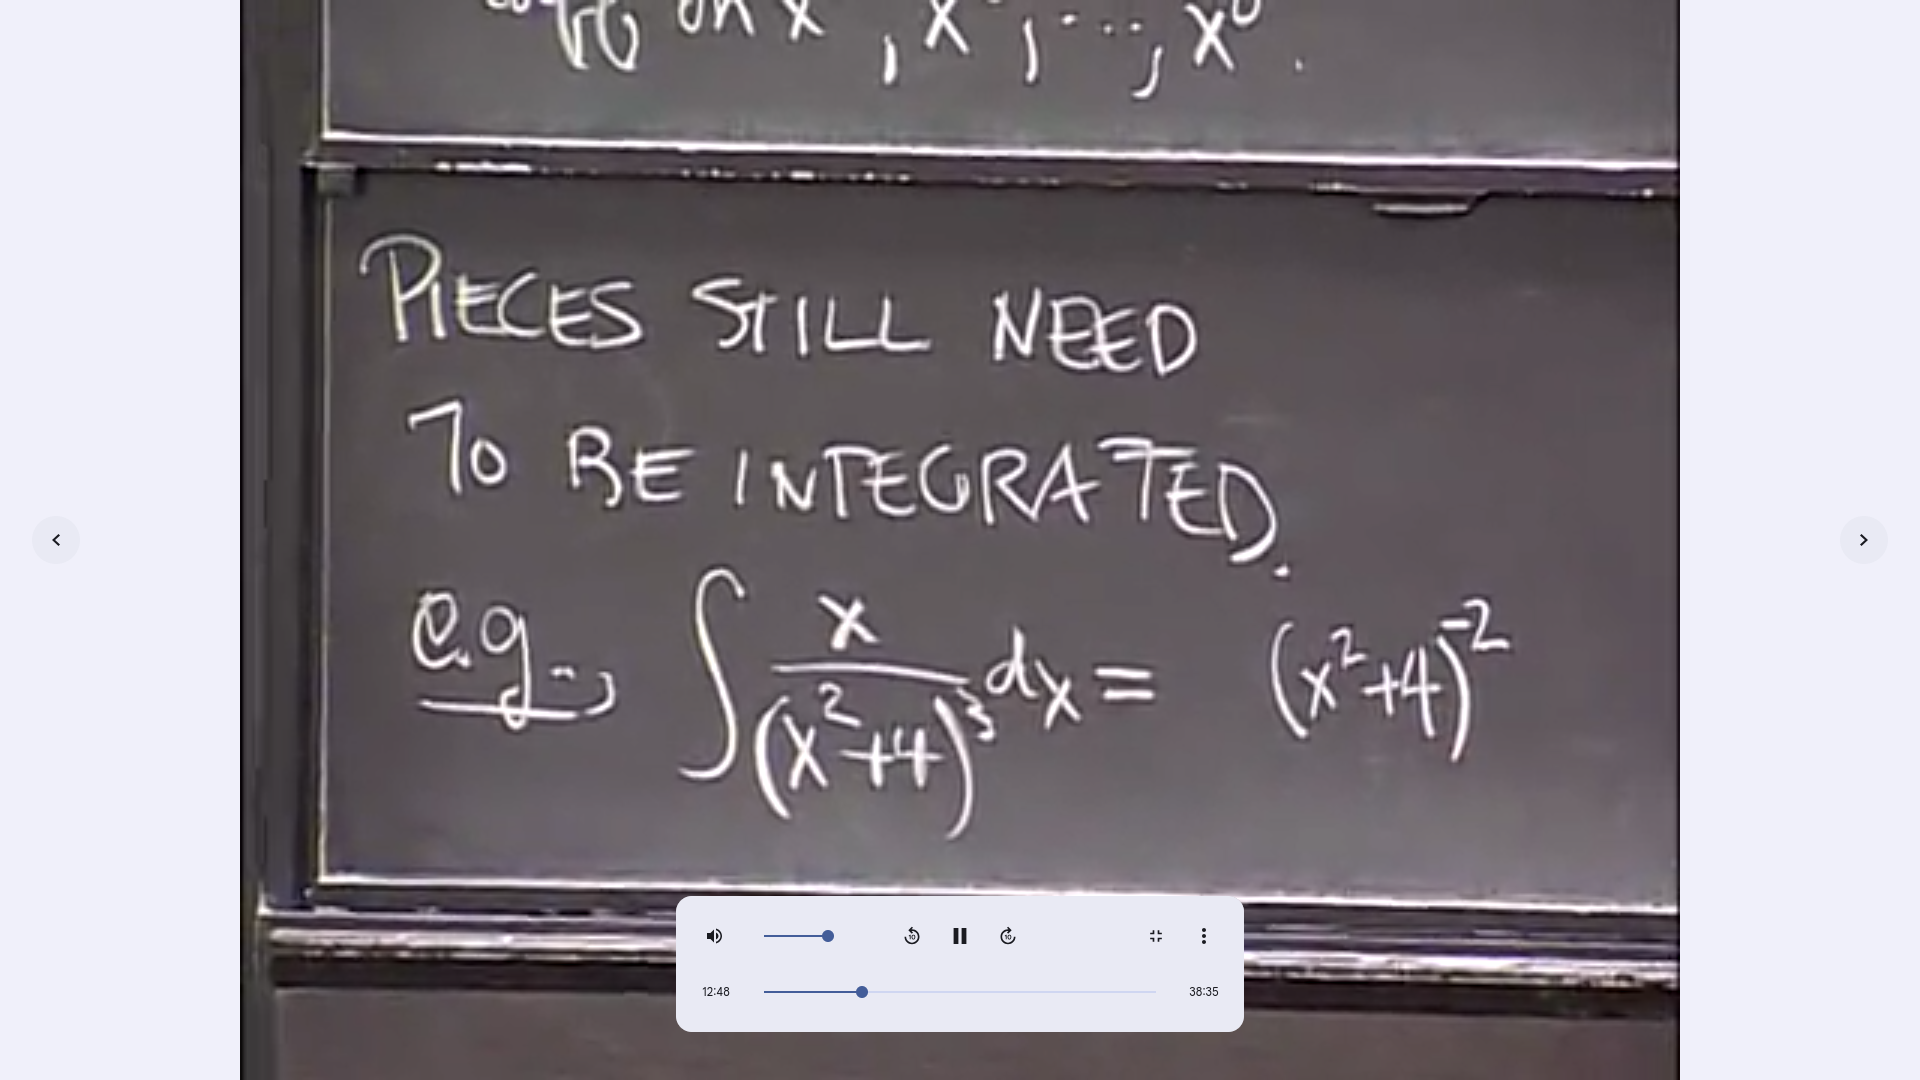 on x , x , ..., x⁰.
PIECES STILL NEED
TO BE INTEGRATED.
e.g., ∫ x/(x²+4)³ dx = (x²+4)⁻²
12:48 38:35